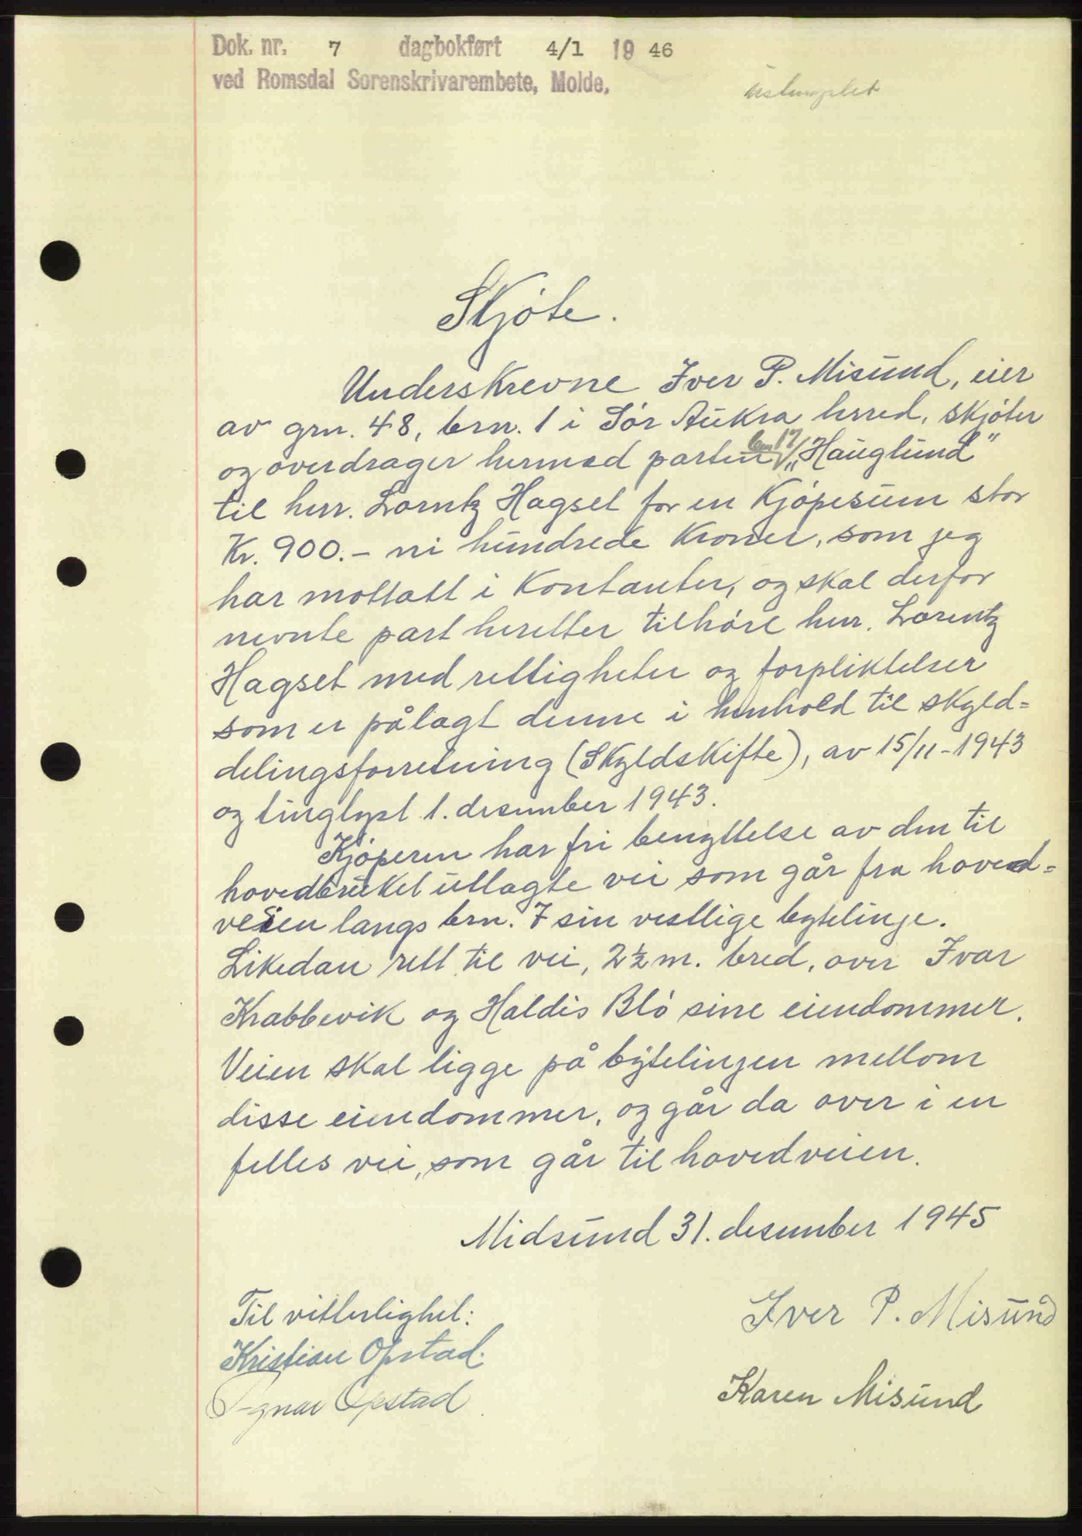 Dok. nr. 7 dagbokført 4/1 1946
ved Romsdal Sorenskrivarembete, Molde.
ustemplet
Skjøte.
Underskrevne Iver P. Misund, eier
av grn. 48, brn. 1 i Sør Aukra herred, skjøter
og overdrager hermed parten brn 17 „Hauglund"
til herr. Lorentz Hagset for en Kjøpesum stor
Kr. 900.- ni hundrede Kroner, som jeg
har mottatt i Kontanter, og skal derfor
nevnte part heretter tilhøre herr. Lorentz
Hagset med rettigheter og forpliktelser
som er pålagt denne i henhold til skyld=
delingsforretning (Skyldskifte), av 15/11-1943
og tinglyst 1. desember 1943.
Kjøperen har fri benyttelse av den til
hovedbruket utlagte vei som går fra hoved=
veien langs brn. 7 sin vestlige bytelinje.
Likedan rett til vei, 2½ m. bred, over Ivar
Krabbevik og Haldis Blø sine eiendommer.
Veien skal ligge på bytelinjen mellom
disse eiendommer, og går da over i en
felles vei, som går til hovedveien.
Midsund 31. desember 1945
Til vitterlighet:
Iver P. Misund
Kristian Opstad.
Karen Misund
Opstad